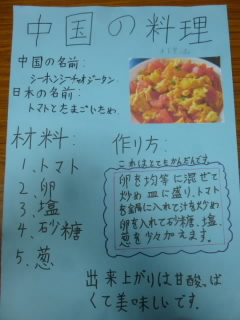 中国の料理
中国の名前:
シーホンシーチャオジータン
日本の名前:
トマトとたまごいため
材料:
1、トマト
2、卵
3、塩
4、砂糖
5、葱
作り方:
これはとてもかんたんです。
卵を均等に混ぜて
炒め皿に盛り、トマト
を鍋に入れて汁を炒め
卵を入れて砂糖、塩、
葱を少々加えます。
出来上がりは甘酸、ぱ
くて美味しいです。